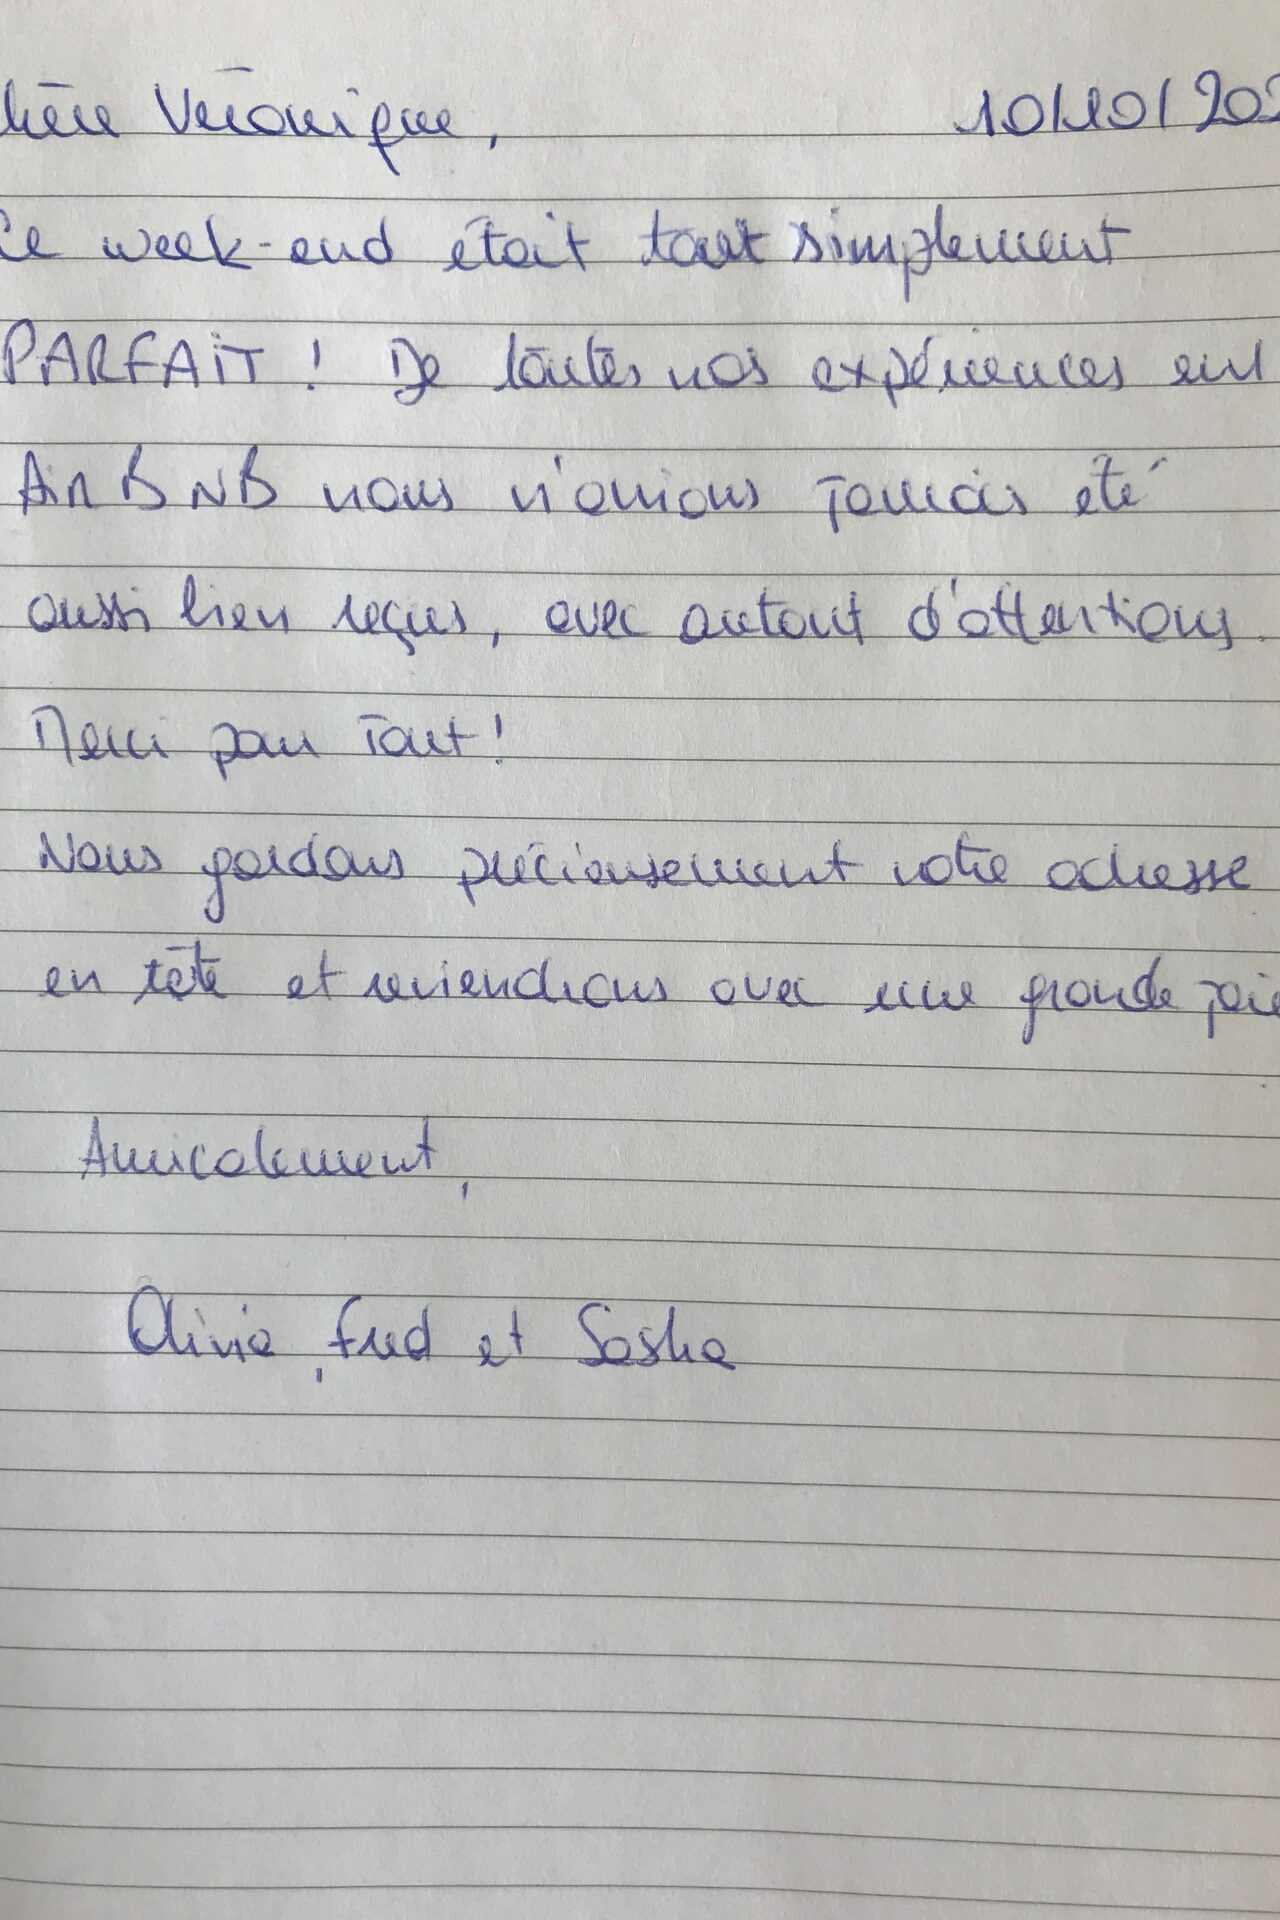 hère Véronique, 10/10/202
Ce week-end était tout simplement
PARFAIT ! De toutes nos expériences en
AirBNB nous n'avions jamais été
aussi bien reçus, avec autant d'attentions.
Merci pour Tout !
Nous gardons précieusement votre adresse
en tête et reviendrons avec une grande joie
Amicalement,
Olivia, Fred et Sasha